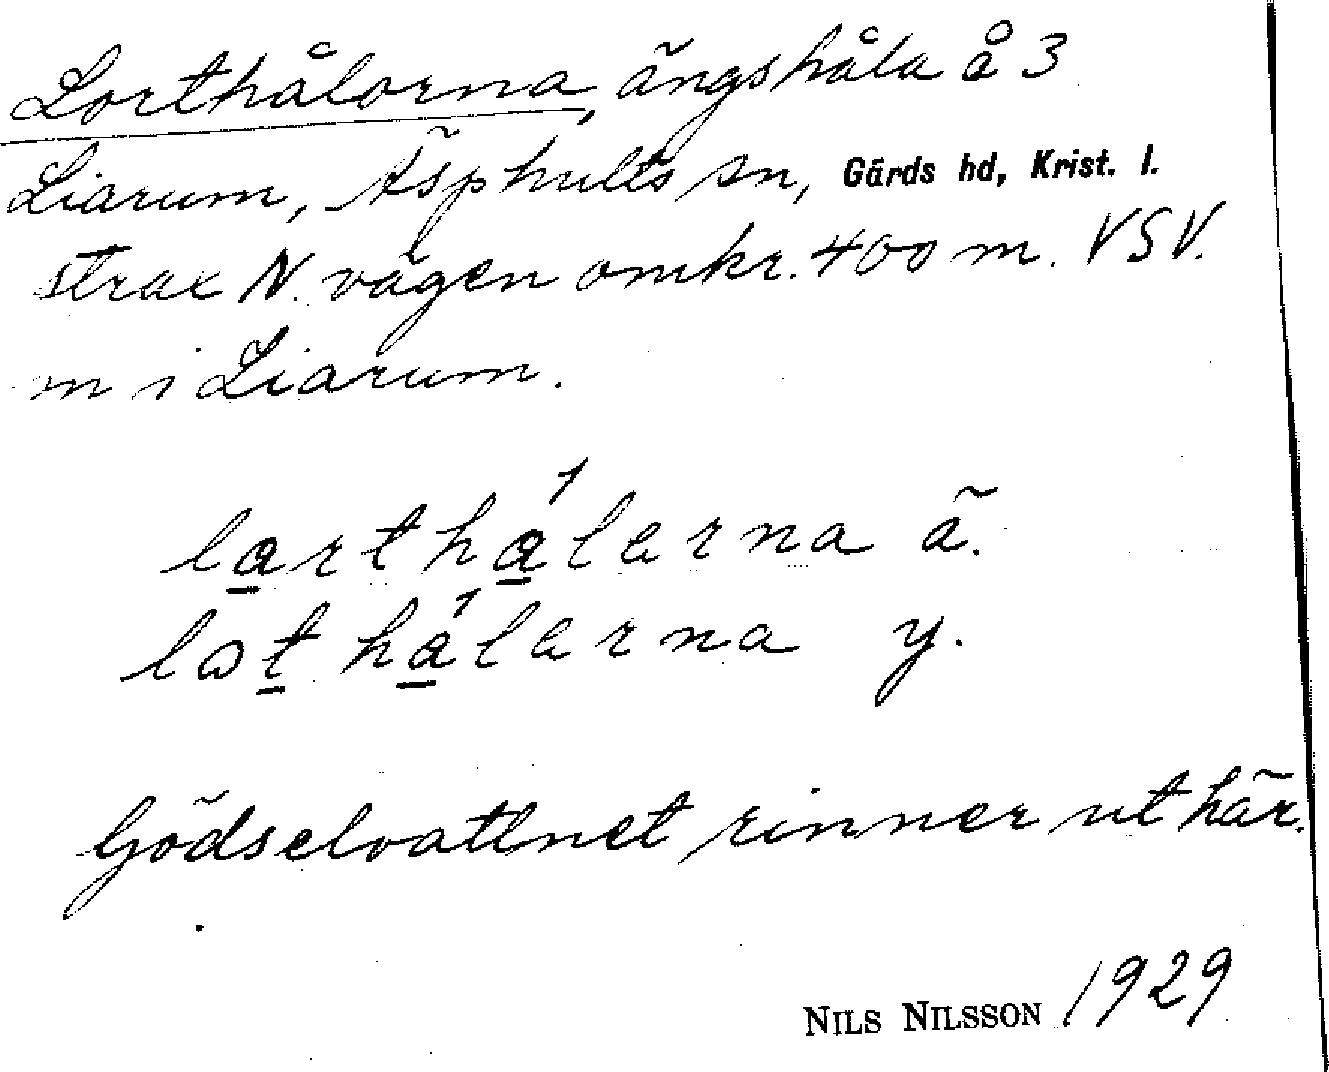 Lorthålorna, ängshåla å 3
Liarum, Äsphults sn, Gärds hd, Krist. l.
strax N. vägen omkr. 400 m. VSV.
m i Liarum.
lart hálarna ä.
lat hálarna y.
Gödselvattnet rinner ut här.
NILS NILSSON 1929